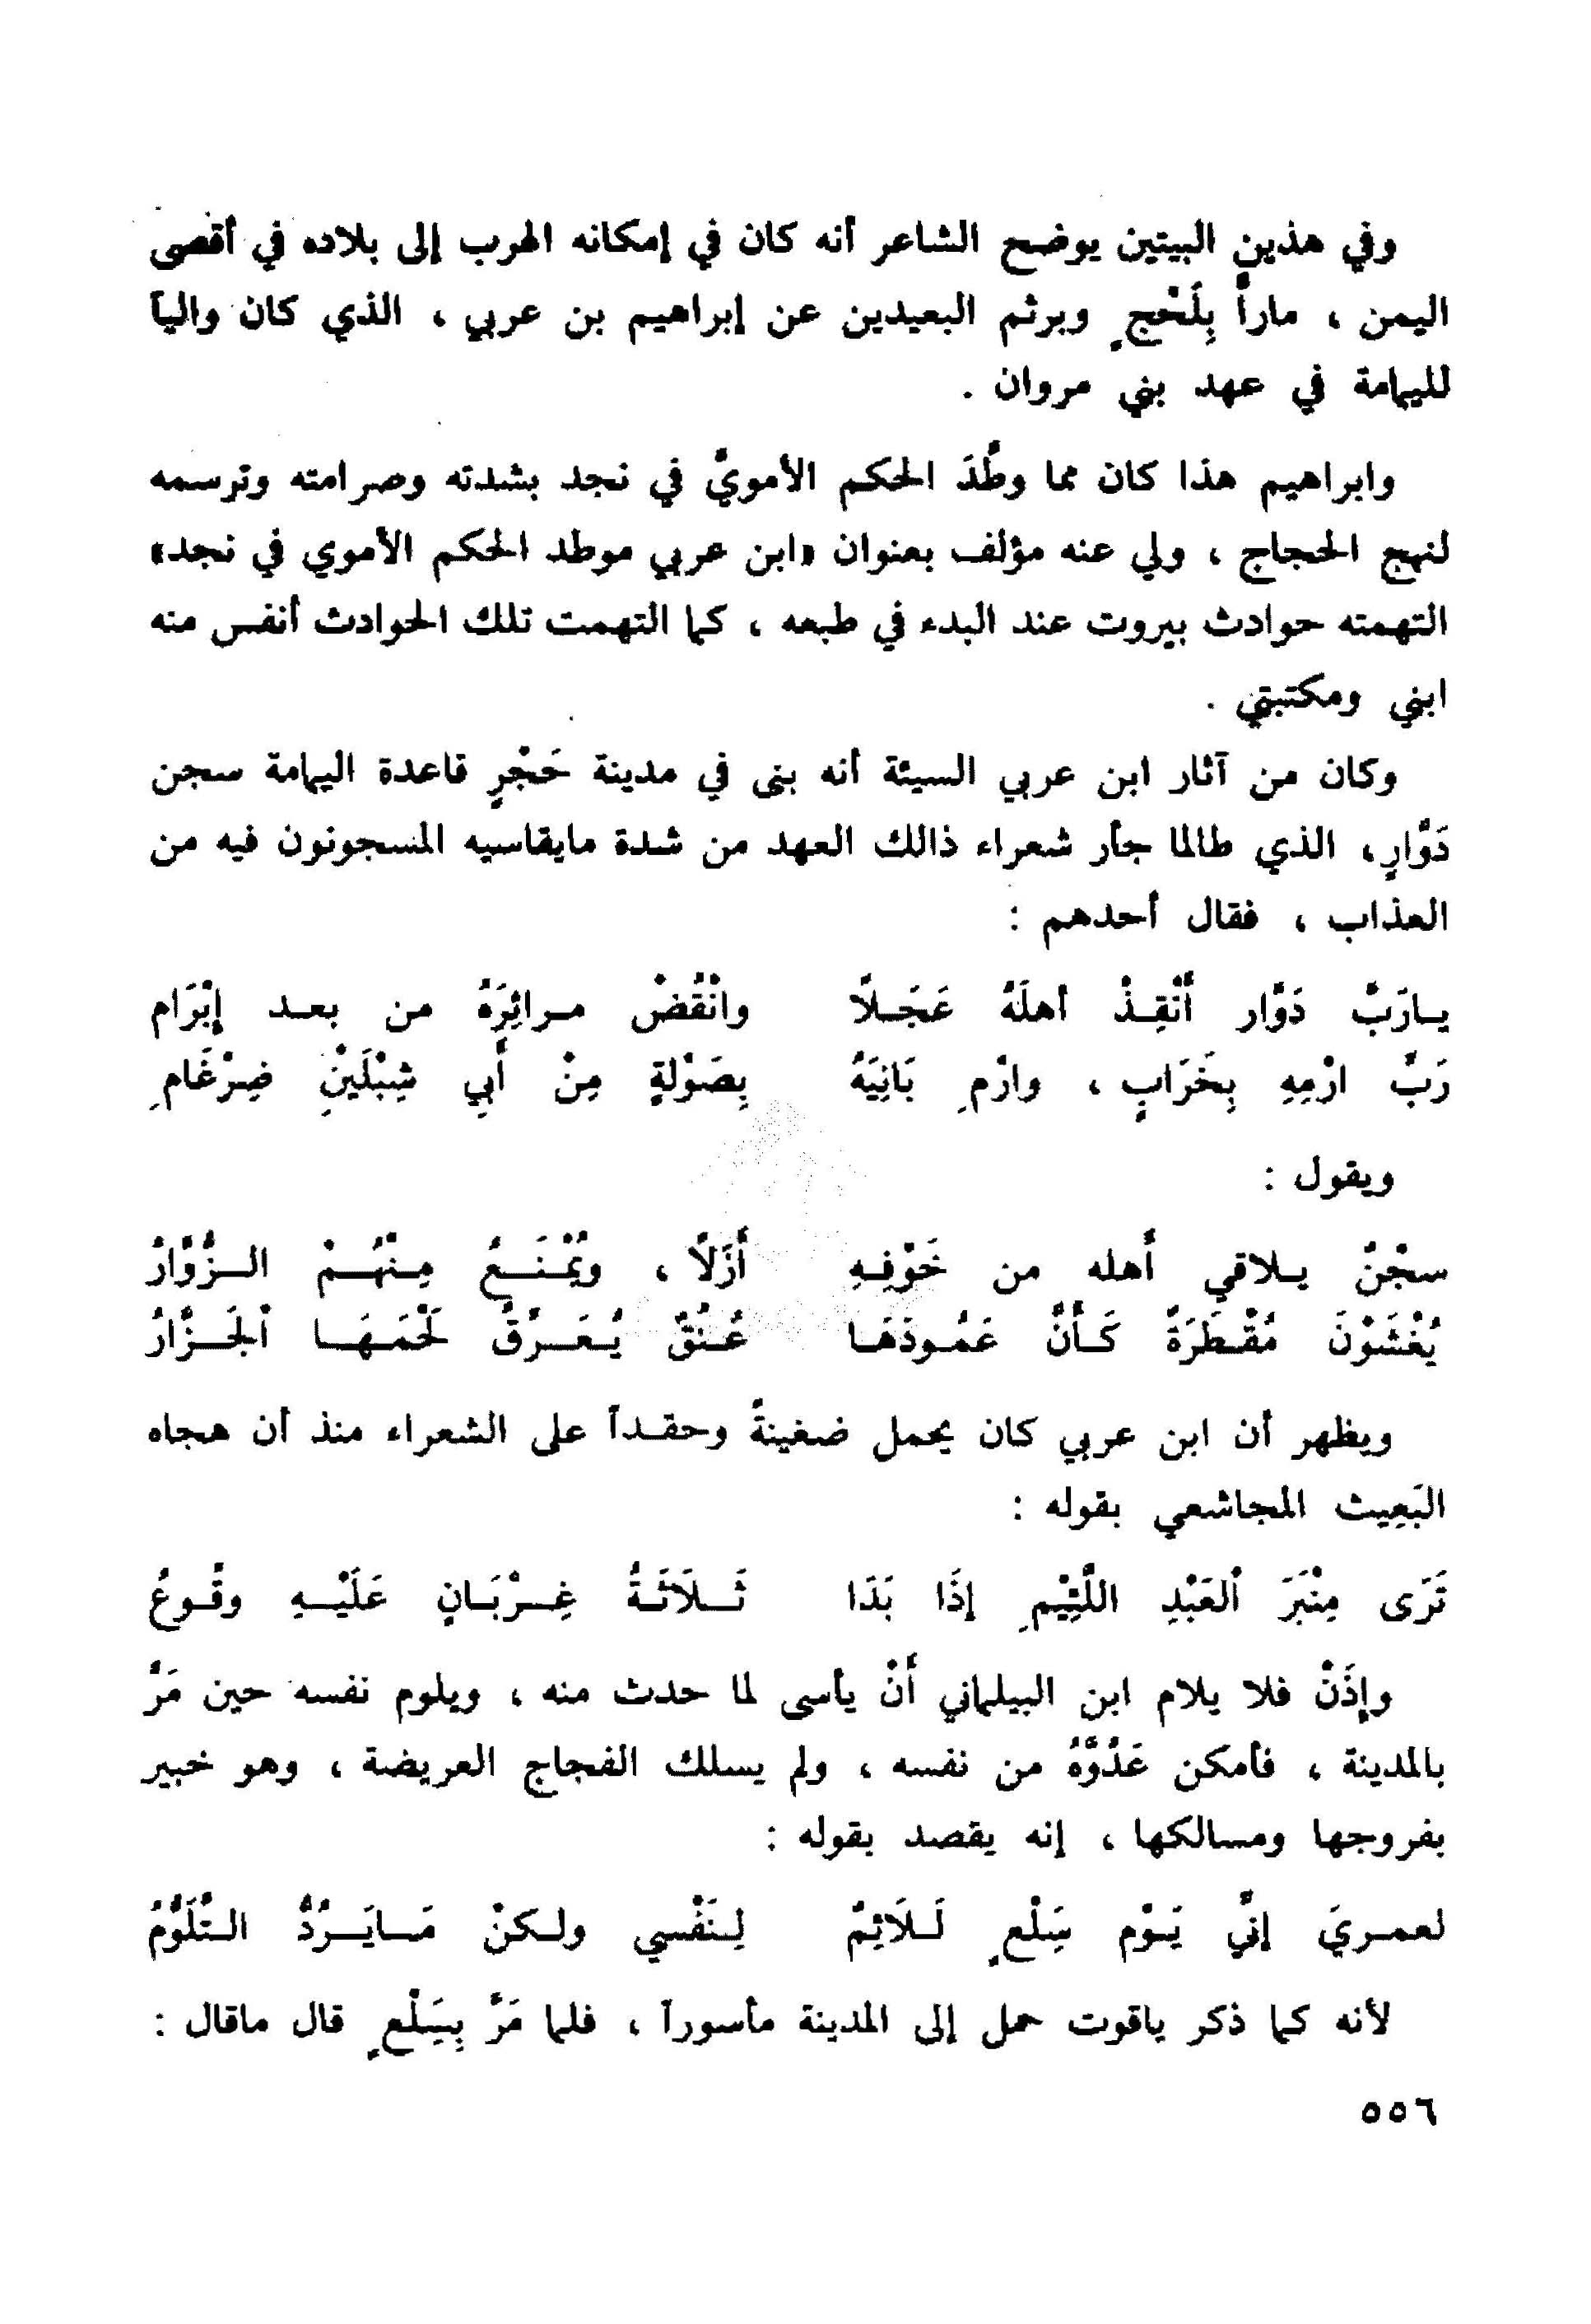 وفي هذين البيتين يوضح الشاعر أنه كان في إمكانه الهرب إلى بلاده في أقصى
اليمن ، ماراً بِلَحْجٍ وبرثم البعيدين عن إبراهيم بن عربي ، الذي كان والياً
لليمامة في عهد بني مروان .
وابراهيم هذا كان مما وطَّدَ الحكم الأمويَّ في نجد بشدته وصرامته وترسمه
لنهج الحجاج ، ولي عنه مؤلف بعنوان «ابن عربي موطد الحكم الأموي في نجد»
التهمته حوادث بيروت عند البدء في طبعه ، كما التهمت تلك الحوادث أنفس منه
ابني ومكتبتي .
وكان من آثار ابن عربي السيئة أنه بنى في مدينة حَجْرٍ قاعدة اليمامة سجن
دَوَّارٍ، الذي طالما جأر شعراء ذالك العهد من شدة مايقاسيه المسجونون فيه من
العذاب ، فقال أحدهم :
يارَبَّ دَوَّار أَنْقِذْ أهلَهُ عَجَلاً وانْقُضْ مرائِرَهُ من بعد إبْرَام
رَبِّ ارْمِهِ بِخَرَابٍ ، وارْمِ بَانِيَهُ بِصَوْلةٍ مِنْ أَبِي شِبْلَيْنِ ضِرْغَامِ
ويقول :
سجْنٌ يلاقي أَهله من خَوْفِهِ أَزَلاً ، ويُمْنَعُ مِنْهُمْ الزُّوَّارُ
يُغْشَوْنَ مُقْطَرَةً كَأَنَّ عَمُودَهَا عُنُقٌ يُعَرِّقُ لَحْمَهَا اْلجَزَّارُ
ويظهر أن ابن عربي كان يحمل ضغينةً وحقداً على الشعراء منذ أن هجاه
البَعِيث المجاشعي بقوله :
تَرَى مِنْبَرَ اْلعَبْدِ اللَّئِيْمِ إذَا بَدَا ثَلاَثَةُ غِرْبَانٍ عَلَيْهِ وقُوعُ
وإِذَنْ فلا يلام ابن البيلماني أَنْ يأسى لما حدث منه ، ويلوم نفسه حين مَرَّ
بالمدينة ، فأمكن عَدُوَّهُ من نفسه ، ولم يسلك الفجاج العريضة ، وهو خبير
بفروجها ومسالكها ، إنه يقصد بقوله :
لعمريَ إنِّي يَوْم سَلْعٍ لَلاَئِمٌ لِنَفْسي ولكنْ مَايَرُدُّ التَّلَوُّمُ
لأنه كما ذكر ياقوت حمل إلى المدينة مأسوراً ، فلما مَرَّ بِسَلْعٍ قال ماقال :
٥٥٦